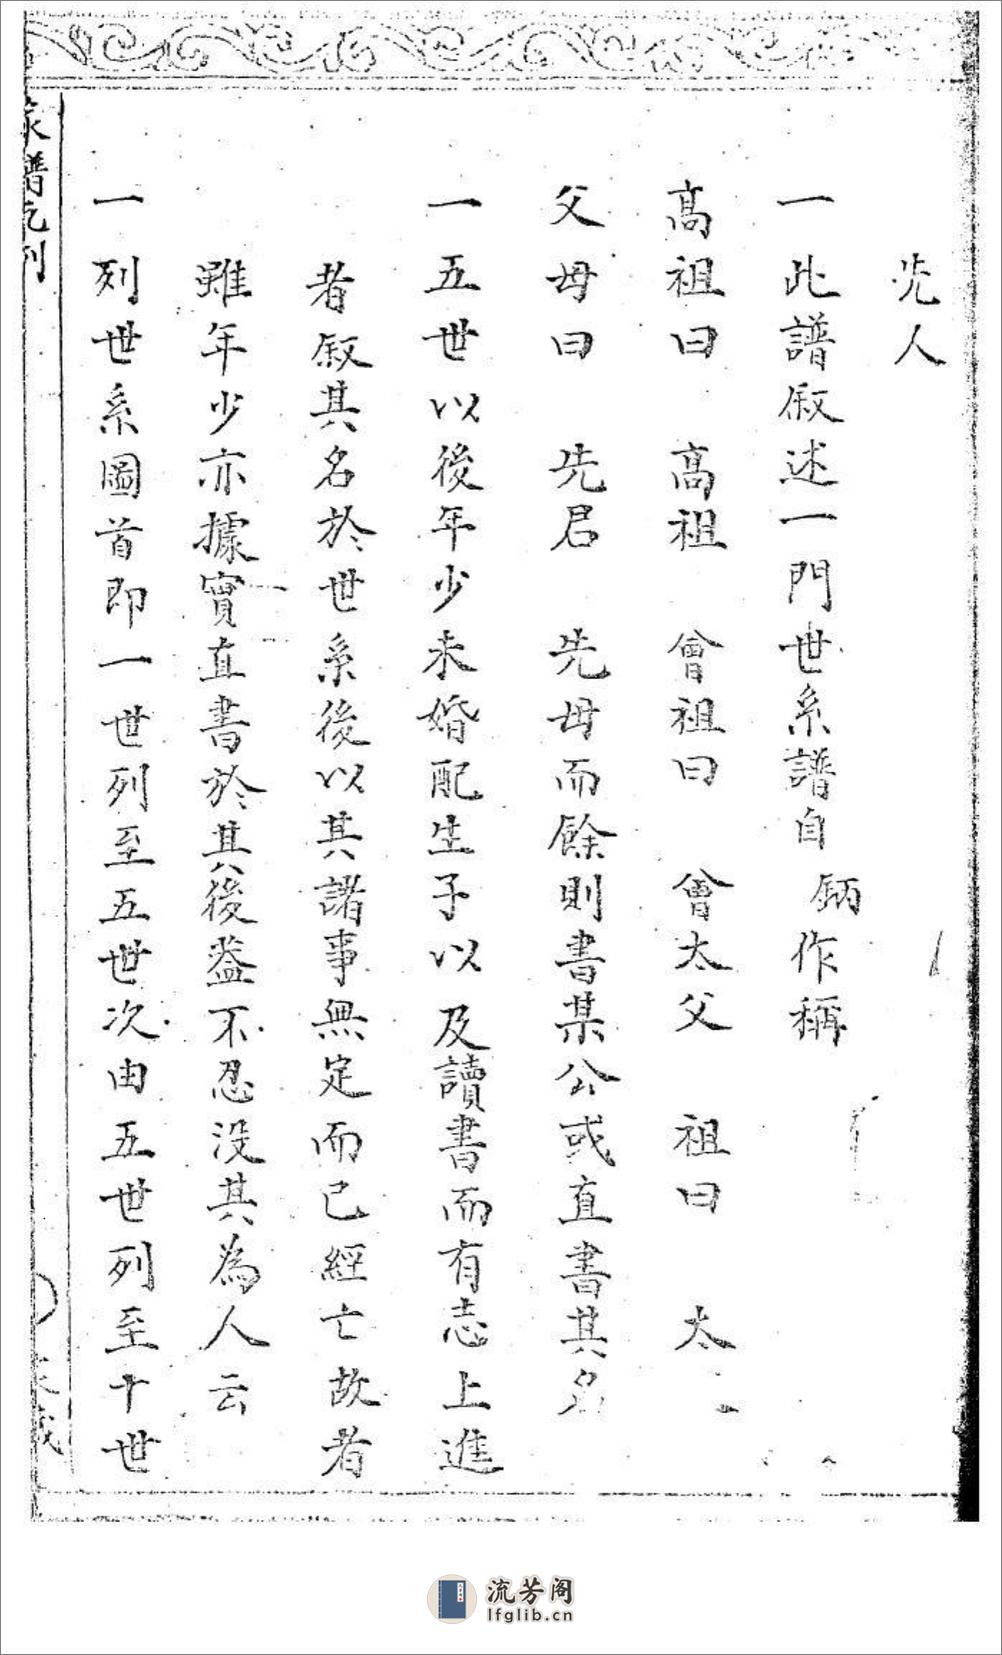 先人
一此譜叙述一門世系譜自鈵作稱
高祖曰　高祖　曾祖曰　曾太父　祖曰　太
父母曰　先君　先母而餘則書某公或直書其名
一五世以後年少未婚配生子以及讀書而有志上進
者叙其名於世系後以其諸事無定而已經亡故者
雖年少亦據實直書於其後葢不忍没其為人云
一列世系圖首即一世列至五世次由五世列至十世
家譜凡例
流芳阁
lfglib.cn